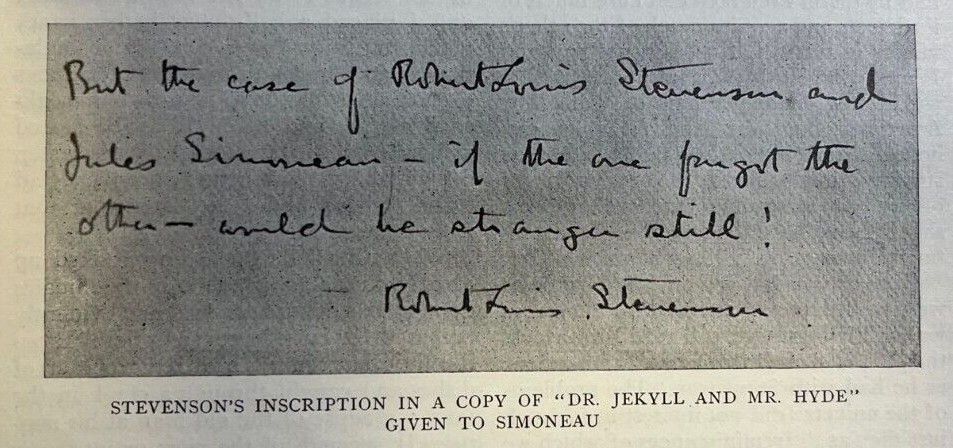 But the case of Robert Louis Stevenson and
Jules Simoneau – if the one forgot the
other – would be stranger still!
Robert Louis Stevenson
STEVENSON'S INSCRIPTION IN A COPY OF "DR. JEKYLL AND MR. HYDE"
GIVEN TO SIMONEAU